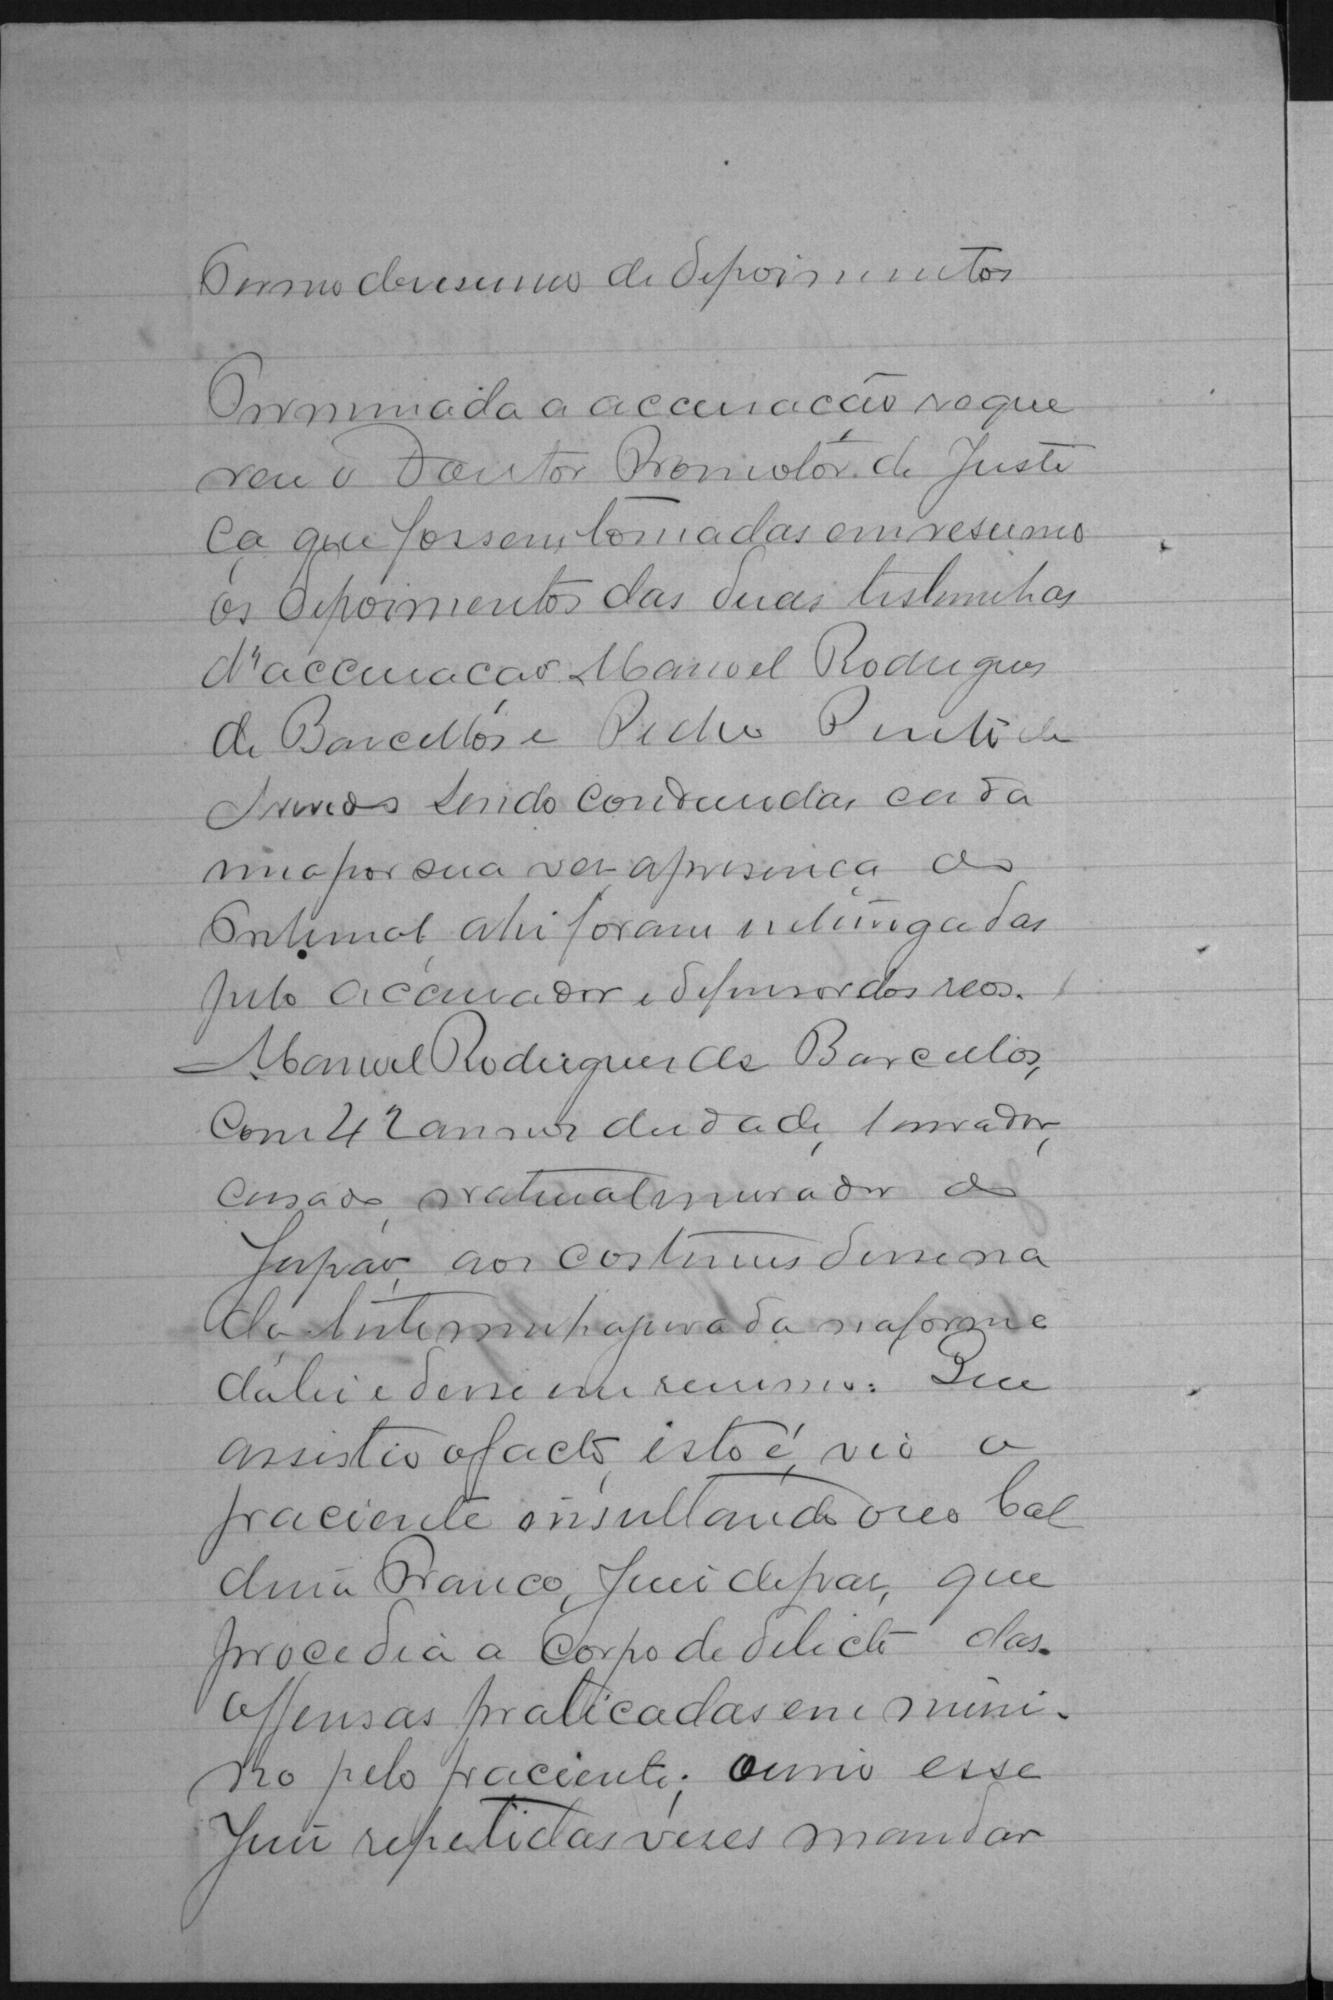 Termo de resumo de depoimentos
Terminada a accusação reque
reu o Doutor Promotor de Justi
ça que fossem tomadas em resumo
os depoimentos das duas testemunhas
d'accusação Manoel Rodrigues
de Barcellos e Pedro Pinto de
sendo condusidas cada
uma por sua vez a presença do
Tribunal, ahi foram interrogadas
pelo accusador e defensor dos reos.
Manoel Rodrigues de Barcellos,
com 42 annos de idade, lavrador,
casado, natural e morador do
aos costumes disse na
da testemunha jurada na forma
da lei e disse em resumo: Que
assistio o facto, isto é, vio o
paciente insultando o reo Cal
Franco, Juiz de paz, que
procedia a corpo de delicto das
offensas praticadas em meni-
no pelo paciente; ouvio esse
Juiz repetidas veses mandar